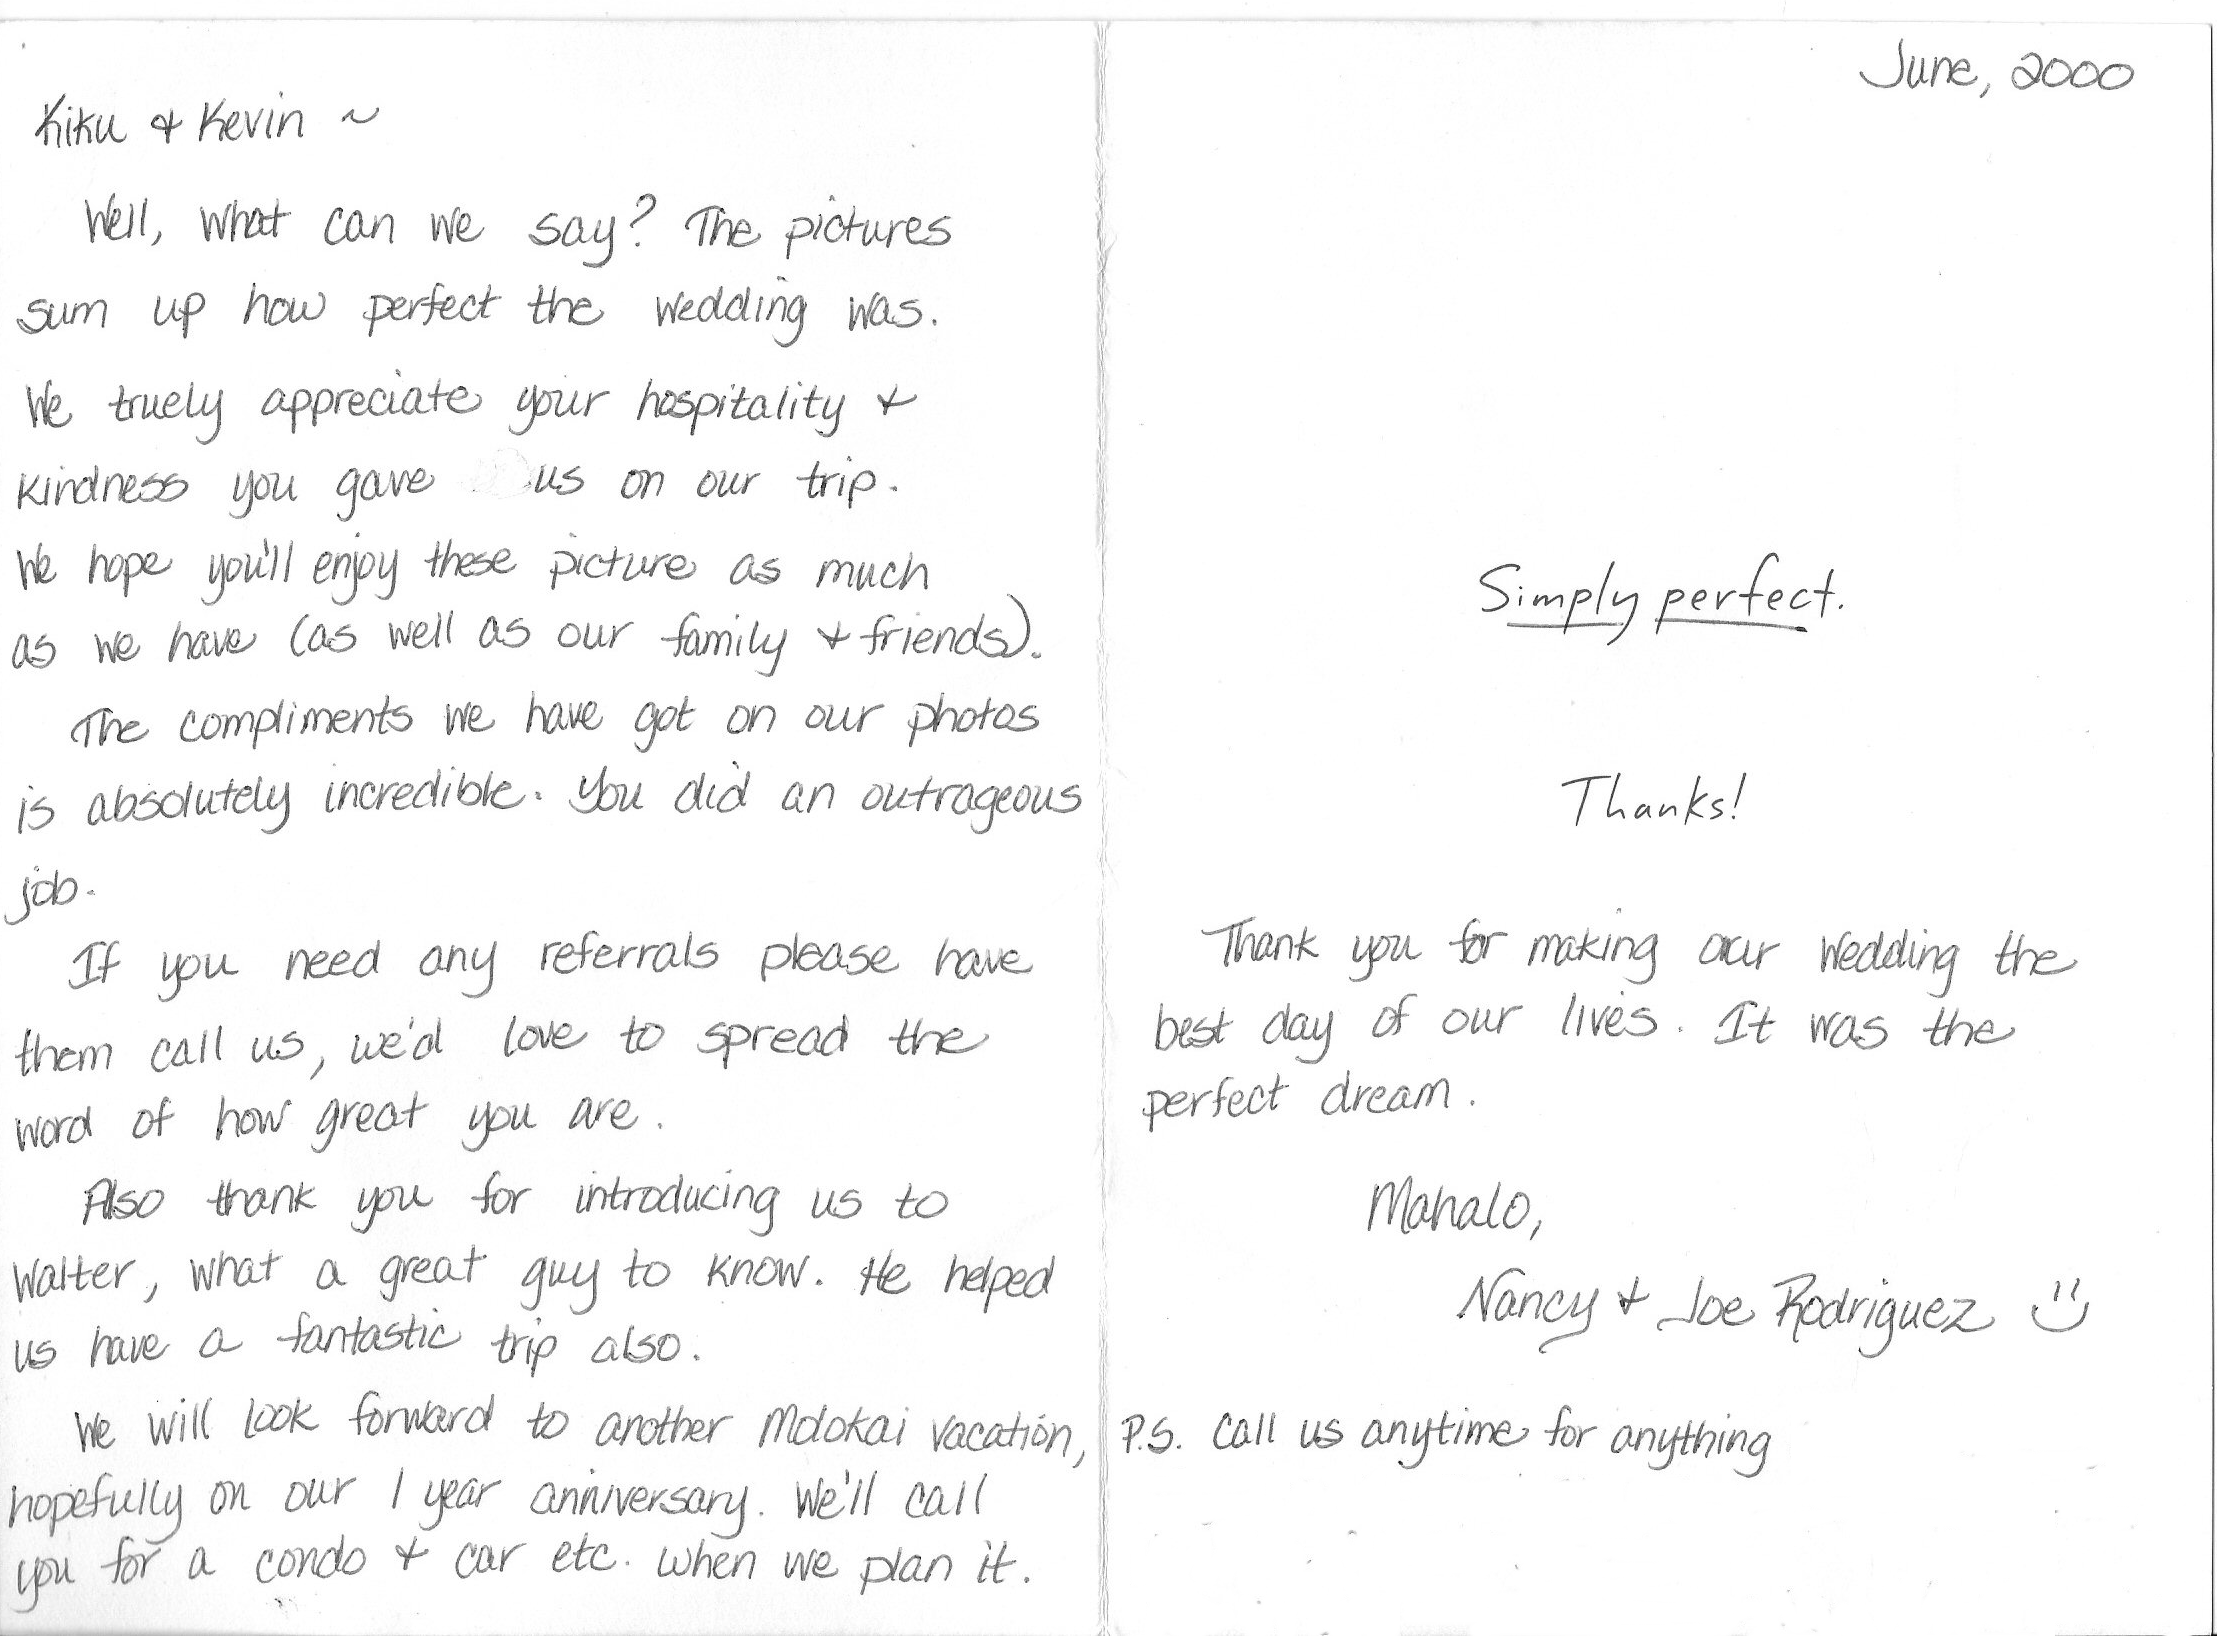 Kiku & Kevin ~
Well, what can we say? The pictures
sum up how perfect the wedding was.
We truely appreciate your hospitality &
kindness you gave us on our trip.
We hope you'll enjoy these picture as much
as we have (as well as our family & friends).
The compliments we have got on our photos
is absolutely incredible. You did an outrageous
job.
If you need any referrals please have
them call us, we'd love to spread the
word of how great you are.
Also thank you for introducing us to
Walter, what a great guy to know. He helped
us have a fantastic trip also.
We will look forward to another Molokai vacation,
hopefully on our 1 year anniversary. We'll call
you for a condo & car etc. when we plan it.
June, 2000
Simply perfect.
Thanks!
Thank you for making our wedding the
best day of our lives. It was the
perfect dream.
Mahalo,
Nancy & Joe Rodriguez
P.S. Call us anytime for anything